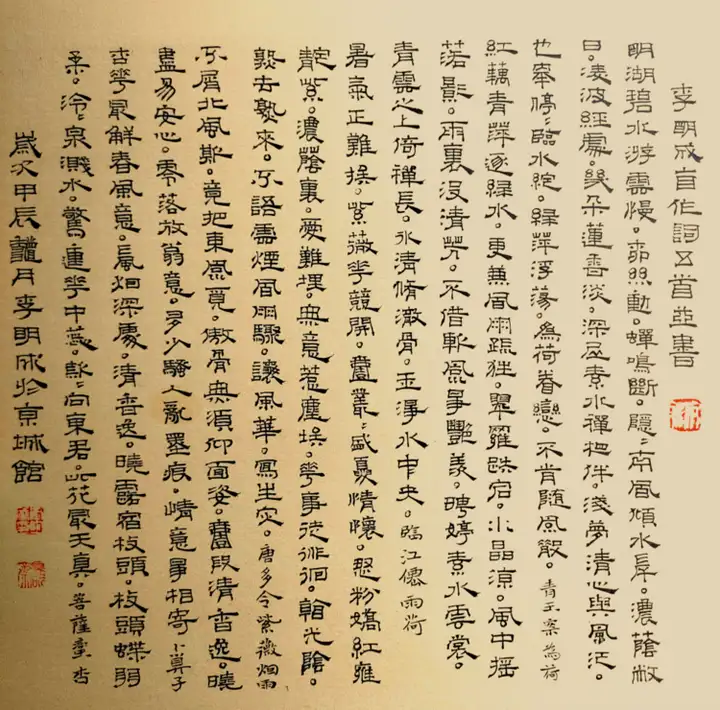 李明成自作詞五首並書
明湖碧水游雲慢。柳絲動。蟬鳴斷。隱々南風傾水岸。濃蔭蔽
日。凌波經處。幾朵蓮香淡。深屋素水禪相伴。淺夢清心與風泛。
也牽停々臨水綻。綠萍浮蕩。為荷眷戀。不肯隨風散。青玉案為荷
紅藕青萍逐綠水。更兼風雨疏狂。翠羅跌宕小晶涼。風中搖
落影。雨裏沒清芳。不借軟風爭艷羨。娉婷素水雲裳。
青雲之上倚禪長。冰清脩澈骨。玉淨水中央。臨江僊雨荷
暑氣正難挨。紫薇華競開。疊叢々盛夏情懷。怒粉嬌紅雍
靛紫。濃蔭裏。愛難埋。無意惹塵埃。華事徒徘徊。韶光陰。
孰去孰來。不語雲煙風雨驟。讓風華。寫生灾。唐多令紫薇烟雨
不屑北風欺。竟把東風覓。傲骨無須仰面姿。段清香逸。曉
盡易安心。零落放翁意。多少騷人亂墨痕。情意爭相寄卜算子
杏華最解春風意。烟深處。清香逸。曉露宿枝頭。枝頭蝶羽
柔。泠々泉濺水。驚蓮華中蕊。脉々向東君。此花最天真。菩薩蠻杏
歲次甲辰龍月李明成於京城館